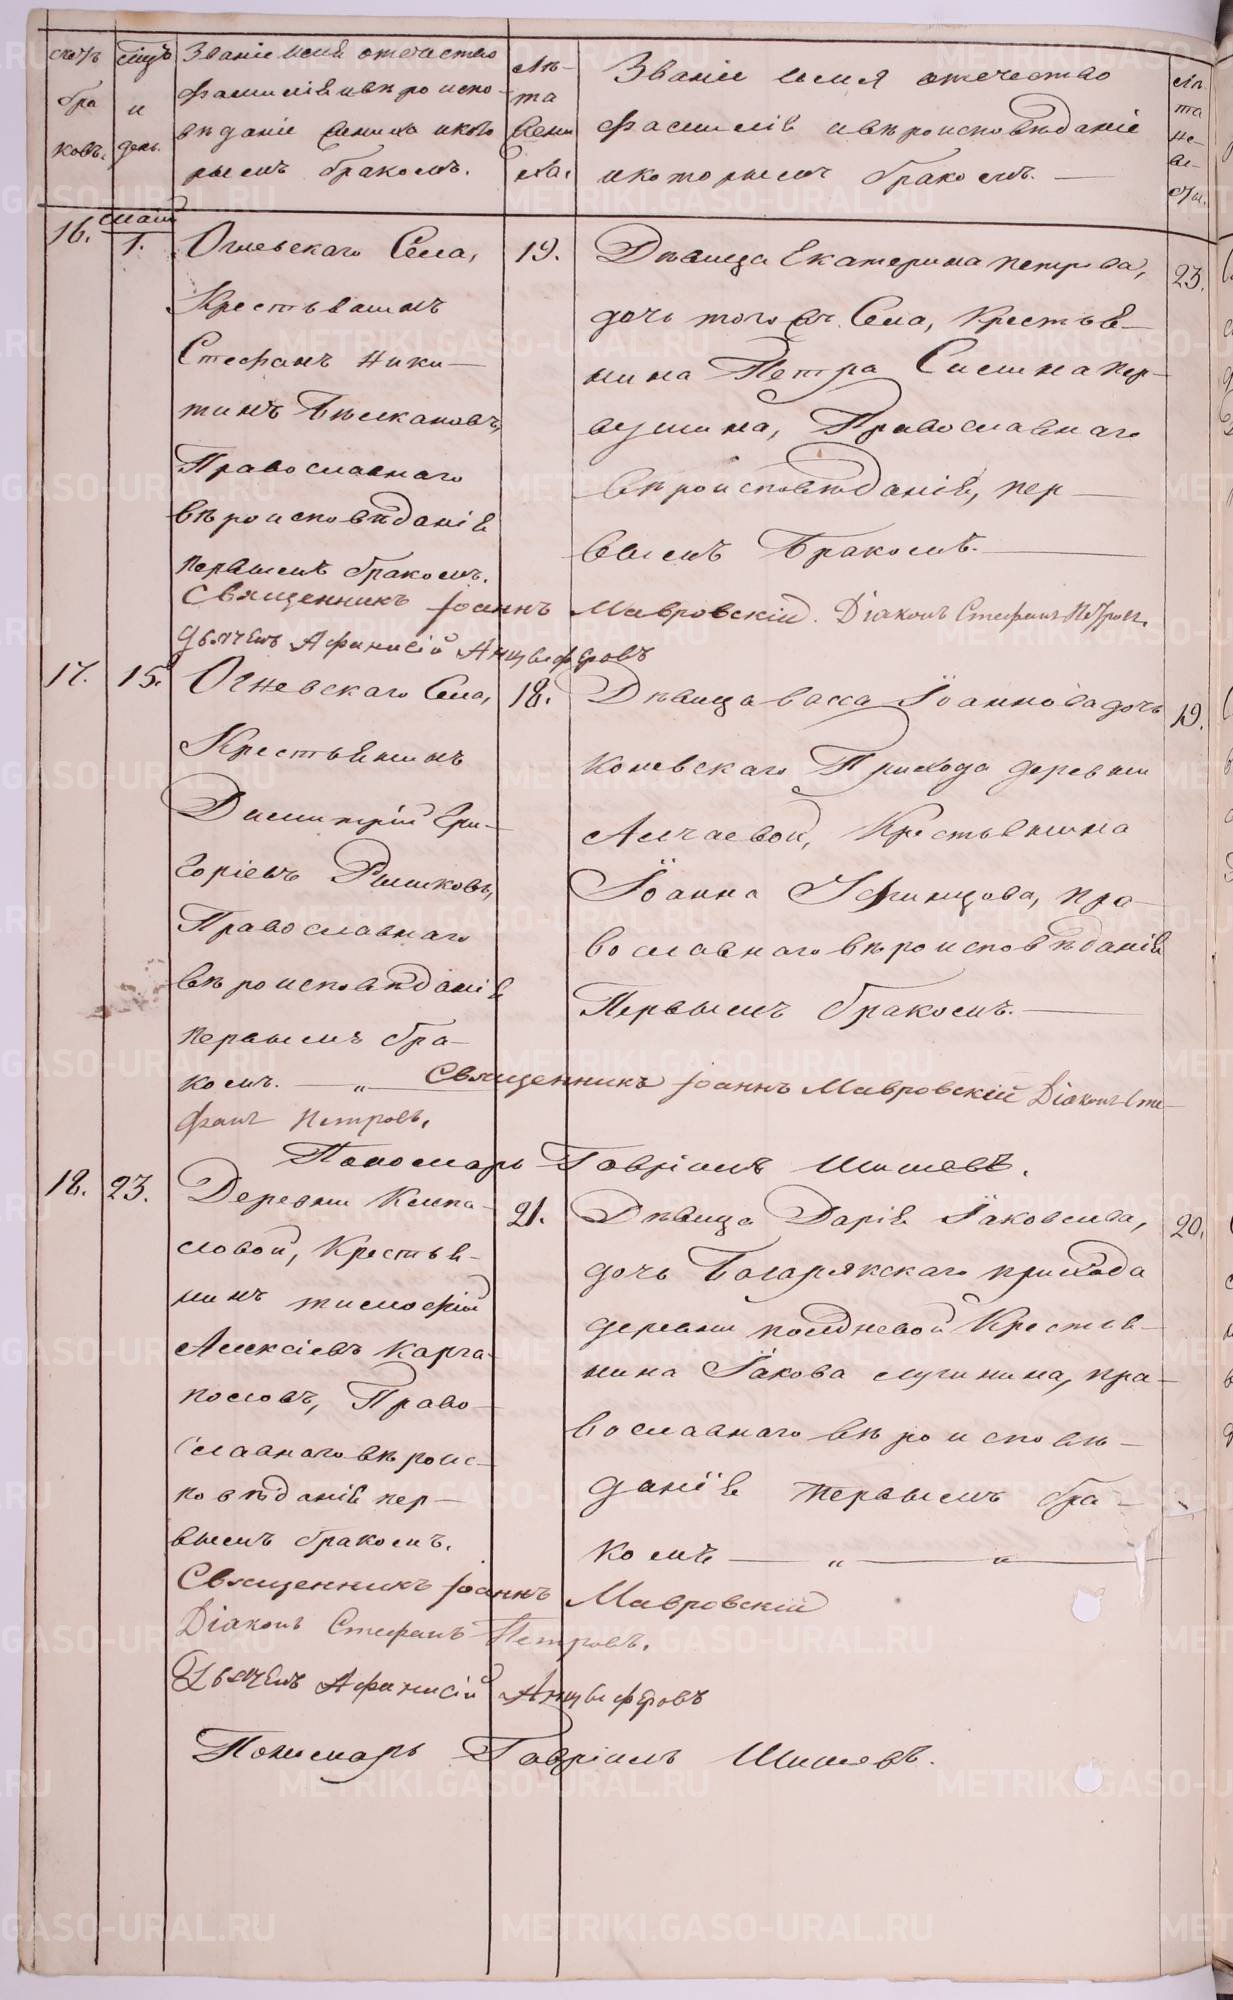 счетъ
бра
ковъ.
мцъ
и
день.
Званіе имя отчество
фамилія и вѣроиспо-
вѣданіе жениха и кото
рымъ бракомъ.
Лѣ-
та
жени
ха.
Званіе имя отечество
фамилія и вѣроисповѣданіе
и которымъ бракомъ. —
Лѣ
та
не-
вѣ-
сты.
16.
маій
1.
Огневскаго Села,
Крестьянинъ
Стефанъ Ники-
тинъ
Православнаго
вѣроисповѣданія
первымъ бракомъ.
19.
Дѣвица Екатерина петрова,
дочь того жъ Села, Крестья-
нина Петра Силина пер-
вушина, Православнаго
вѣроисповѣданія, пер-
вымъ бракомъ. —
23.
Священникъ Іоаннъ Мавровскій. Діаконъ Стефанъ Петровъ.
Дьячекъ Афанасій Анцыферовъ
17.
15.
Огневскаго Села,
Крестьянинъ
Димитрій Гри-
горіевъ
Православнаго
вѣроисповѣданія
первымъ бра-
комъ. — „ —
18.
Дѣвица васса Іоаннова дочь
коневскаго Прихода деревни
Крестьянина
Іоанна Уфинцова, пра-
вославнаго вѣроисповѣданія
Первымъ бракомъ. —
19.
Священникъ Іоаннъ Мавровскій Діаконъ Сте-
фанъ Петровъ.
Пономарь Гавріилъ Шишевъ.
18.
23.
Деревни
словой, Крестья-
нинъ тимофій
Алексіевъ Карга-
пословъ, Право-
славнаго вѣроис-
повѣданія пер-
вымъ бракомъ.
21.
Дѣвица Дарія Іаковлива,
дочь Багарякскаго прихода
деревни полдневой Крестья-
нина Іакова лугинина, пра-
вославнаго вѣроисповѣ-
данія первымъ бра-
комъ — „ — „ —
20.
Священникъ Іоаннъ Мавровскій
Діаконъ Стефанъ Петровъ.
Дьячекъ Афанасій Анцыферовъ
Пономарь Гавріилъ Шишевъ.
METRIKI.GASO-URAL.RU